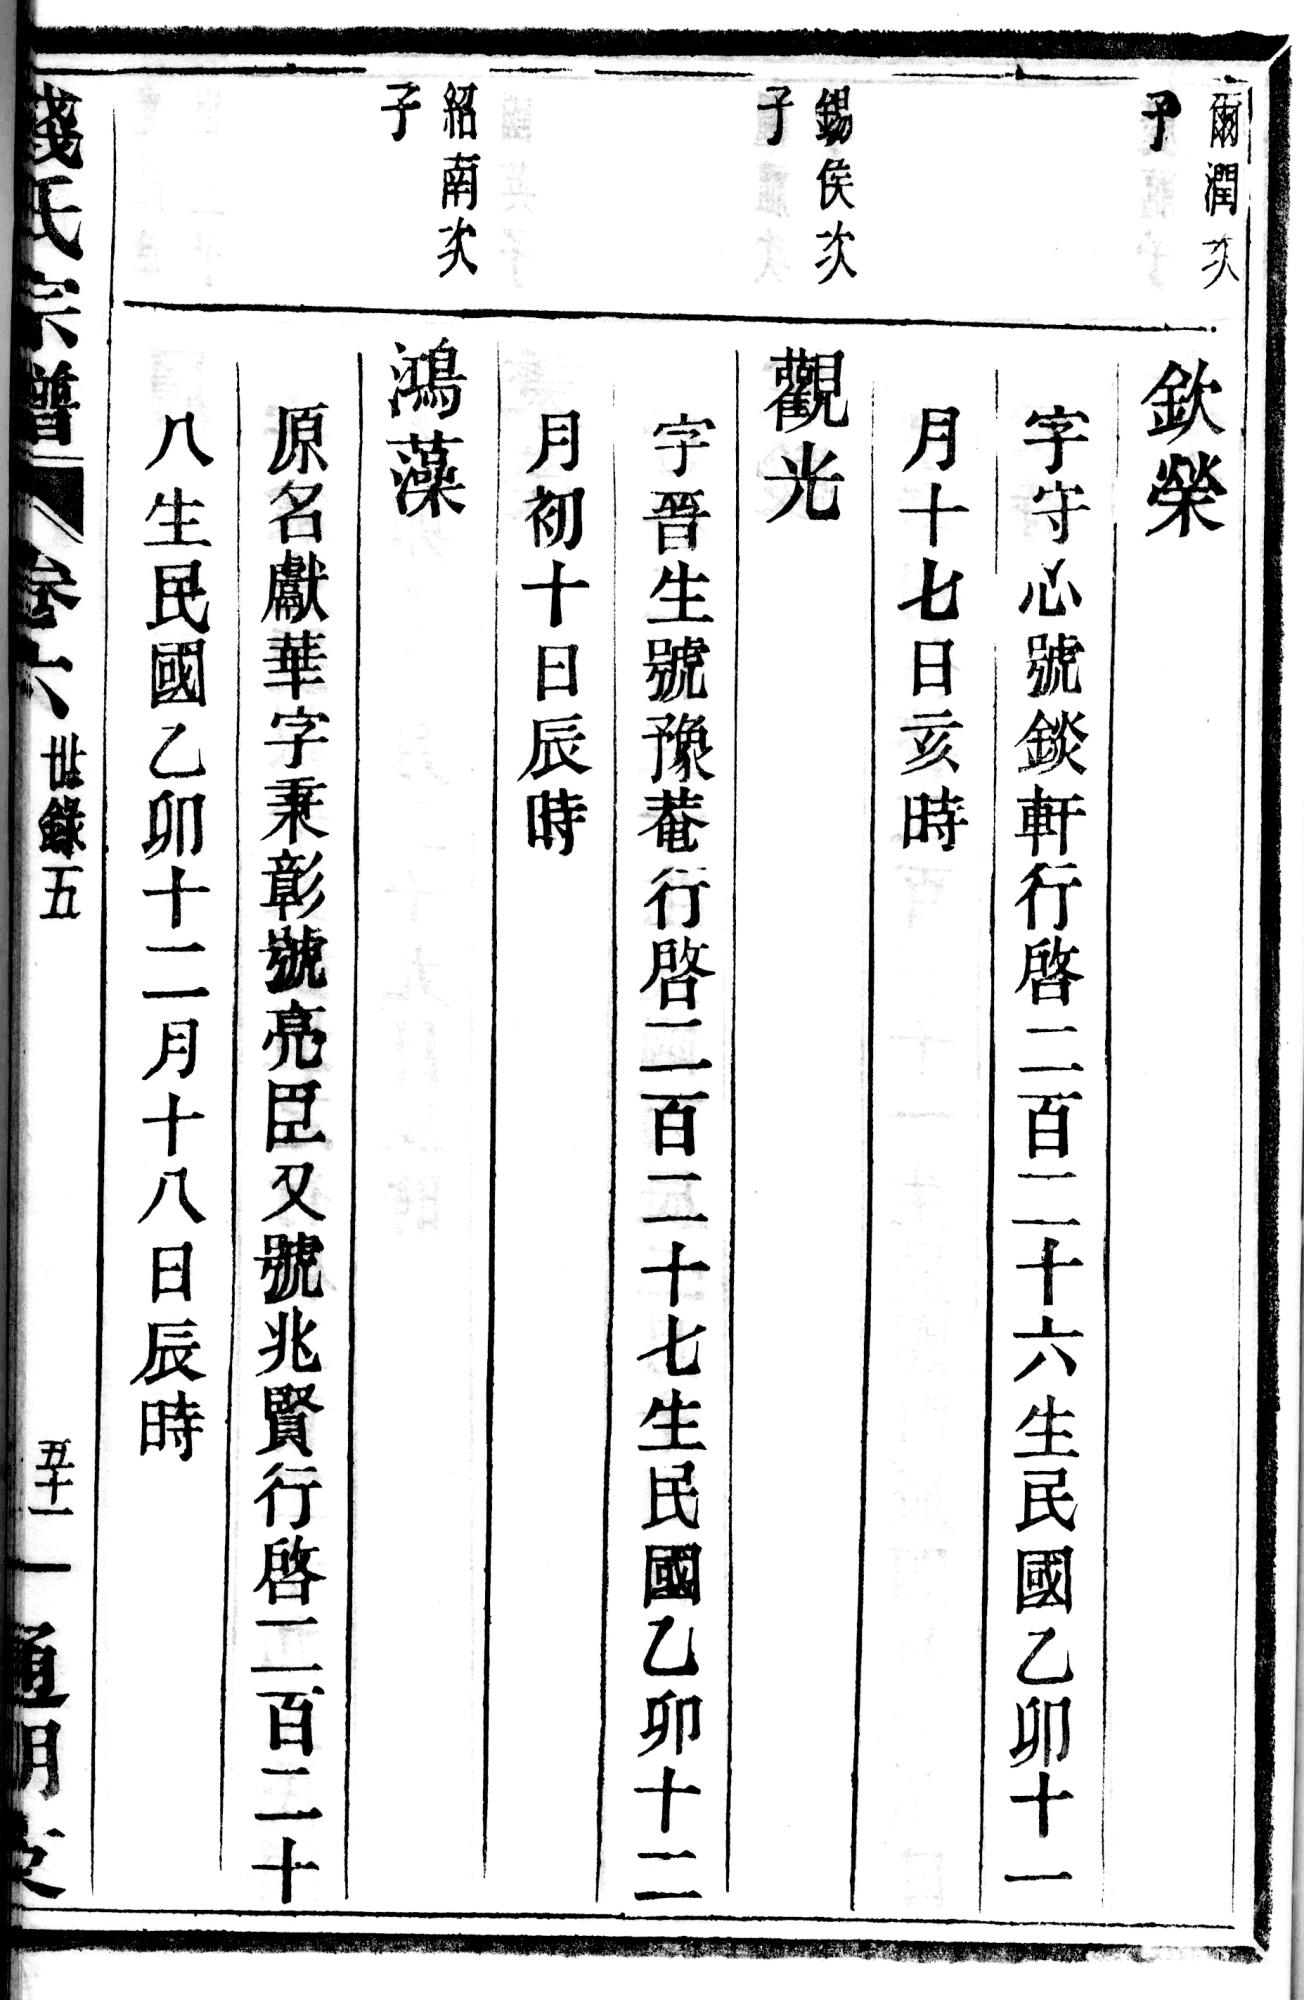 爾潤次
子
欽榮
字守心號錟軒行啓二百二十六生民國乙卯十一
月十七日亥時
錫侯次
子
觀光
字晉生號豫菴行啓二百二十七生民國乙卯十二
月初十日辰時
紹南次
子
鴻藻
原名獻華字秉彰號亮臣又號兆賢行啓二百二十
八生民國乙卯十二月十八日辰時
錢氏宗譜
卷六
世錄五
五十一
通明